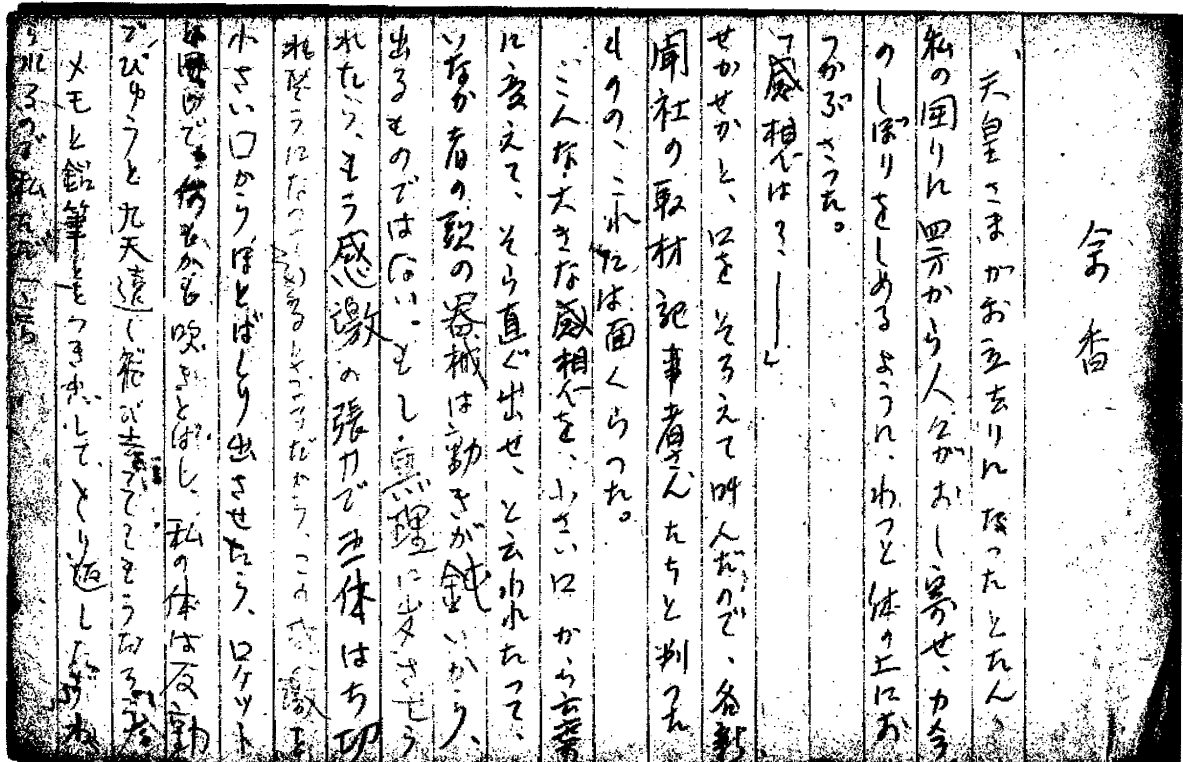 余香
天皇さまがお立去りになったとたん、
私の囲りに四方から人々がおし寄せ、力今
のしぼりをしめるように、わっと体の上にお
つかぶさった。
「感想は?――」
せかせかと、口をそろえて叫んだので、各新
聞社の取材記事者さんたちと判った
ものの、これには面くらった。
こんな大きな感想を、小さい口から言葉
に変えて、そら直ぐ出せ、と云われたって、
いなか者の頭の器械は動きが鈍いから、
出るものではない。もし無理に出させら
れたら、もう感激の張力で五体はち切
れそうになっているところだから、この感激を
小さい口からほとばしり出させたら、ロケット
何もかも吹きとばし、私の体は反動
でびゅうと九天遠く飛び去ってしまうだろう
メモと鉛筆をつき出して、くり返したずね
られるのが私